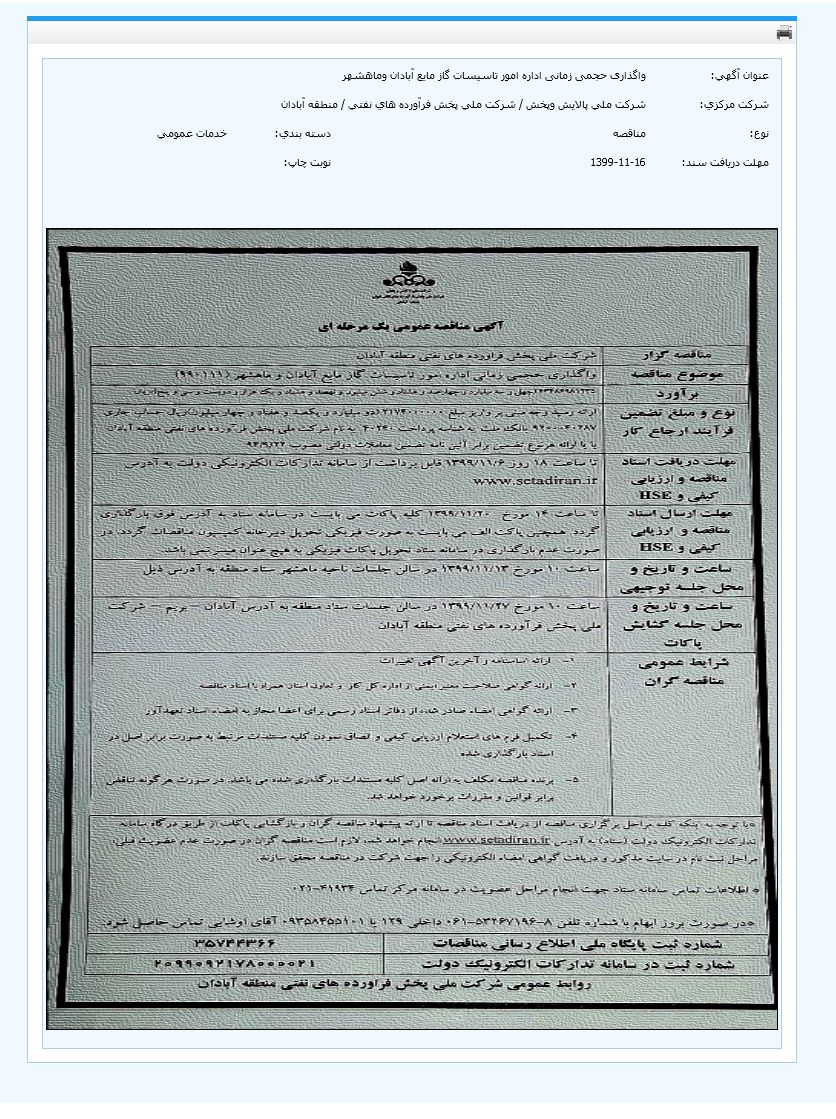 عنوان آگهي: واگذاری حجمی زمانی اداره امور تاسیسات گاز مایع آبادان وماهشهر
شرکت مرکزي: شرکت ملي پالايش وپخش / شرکت ملي پخش فرآورده هاي نفتي / منطقه آبادان
نوع: مناقصه دسته بندي: خدمات عمومي
مهلت دريافت سند: 1399-11-16 نوبت چاپ:
آگهی مناقصه عمومی یک مرحله ای
مناقصه گزار شرکت ملی پخش فراورده های نفتی منطقه آبادان
موضوع مناقصه واگذاری حجمی زمانی اداره امور تاسیسات گاز مایع آبادان و ماهشهر (۹۹۰۱۱۱)
برآورد
نوع و مبلغ تضمین ارائه رسید وجه مبنی بر واریز مبلغ ۲۱۷۴۰۰۰۰۰۰ (دو میلیارد و یکصد و هفتاد و چهار میلیون)ریال حساب جاری
فرآیند ارجاع کار بانک ملت به شناسه پرداخت به نام شرکت ملی پخش فرآورده های نفتی منطقه آبادان
یا با ارائه هرنوع تضمین برابر آئین نامه تضمین معاملات دولتی مصوب ۹۴/۹/۲۲
مهلت دریافت اسناد تا ساعت ۱۸ روز ۱۳۹۹/۱۱/۶ قابل برداشت از سامانه تدارکات الکترونیکی دولت به آدرس
مناقصه و ارزیابی www.setadiran.ir
کیفی و HSE
مهلت ارسال اسناد تا ساعت ۱۴ مورخ ۱۳۹۹/۱۱/۲۰ کلیه پاکات می بایست در سامانه ستاد به آدرس فوق بارگذاری
مناقصه و ارزیابی گردد. همچنین پاکت الف می بایست به صورت فیزیکی تحویل دبیرخانه کمیسیون مناقصات گردد. در
کیفی و HSE صورت عدم بارگذاری در سامانه ستاد تحویل پاکات فیزیکی به هیچ عنوان میسر نمی باشد.
ساعت و تاریخ و ساعت ۱۰ مورخ ۱۳۹۹/۱۱/۱۳ در سالن جلسات ناحیه ماهشهر ستاد منطقه به آدرس ذیل
محل جلسه توجیهی
ساعت و تاریخ و ساعت ۱۰ مورخ ۱۳۹۹/۱۱/۲۷ در سالن جلسات ستاد منطقه به آدرس آبادان – بریم – شرکت
محل جلسه گشایش ملی پخش فرآورده های نفتی منطقه آبادان
پاکات
شرایط عمومی ۱- ارائه اساسنامه و آخرین آگهی تغییرات
مناقصه گران ۲- ارائه گواهی صلاحیت معتبر ایمنی از اداره کل کار و تعاون استان همراه با اسناد مناقصه
۳- ارائه گواهی امضاء صادر شده از دفاتر اسناد رسمی برای اعضا مجاز به امضاء اسناد تعهدآور
۴- تکمیل فرم های استعلام ارزیابی کیفی و الصاق نمودن کلیه مستندات مرتبط به صورت برابر اصل در
اسناد بارگذاری شده
۵- برنده مناقصه مکلف به ارائه اصل کلیه مستندات بارگذاری شده می باشد. در صورت هرگونه تناقض
برابر قوانین و مقررات برخورد خواهد شد.
*با توجه به اینکه کلیه مراحل برگزاری مناقصه از دریافت اسناد مناقصه تا ارائه پیشنهاد مناقصه گران و بازگشایی پاکات از طریق درگاه سامانه
تدارکات الکترونیک دولت (ستاد) به آدرس www.setadiran.ir انجام خواهد شد، لازم است مناقصه گران در صورت عدم عضویت قبلی،
مراحل ثبت نام در سایت مذکور و دریافت گواهی امضاء الکترونیکی را جهت شرکت در مناقصه محقق سازند.
* اطلاعات تماس سامانه ستاد جهت انجام مراحل عضویت در سامانه مرکز تماس ۴۱۹۳۴-۰۲۱
*در صورت بروز ابهام با شماره تلفن ۸-۵۳۲۶۷۱۹۶-۰۶۱ داخلی ۱۲۹ یا ۰۹۳۵۸۴۵۵۱۰۱ آقای اوشایی تماس حاصل شود.
شماره ثبت پایگاه ملی اطلاع رسانی مناقصات ۳۵۷۴۴۳۶۶
شماره ثبت در سامانه تدارکات الکترونیک دولت ۲۰۹۹۰۹۲۱۷۸۰۰۰۰۲۱
روابط عمومی شرکت ملی پخش فراورده های نفتی منطقه آبادان